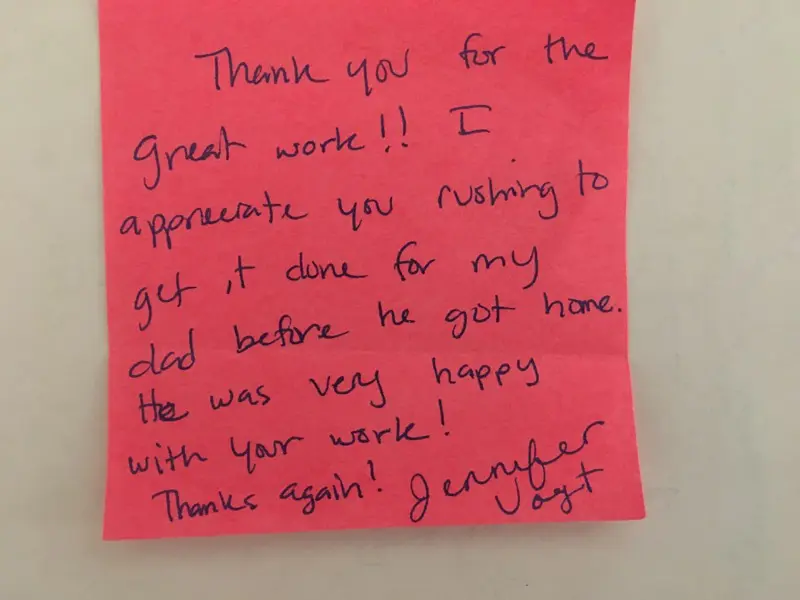 Thank you for the
great work!! I
appreciate you rushing to
get it done for my
dad before he got home.
He was very happy
with your work!
Thanks again! Jennifer
Vogt